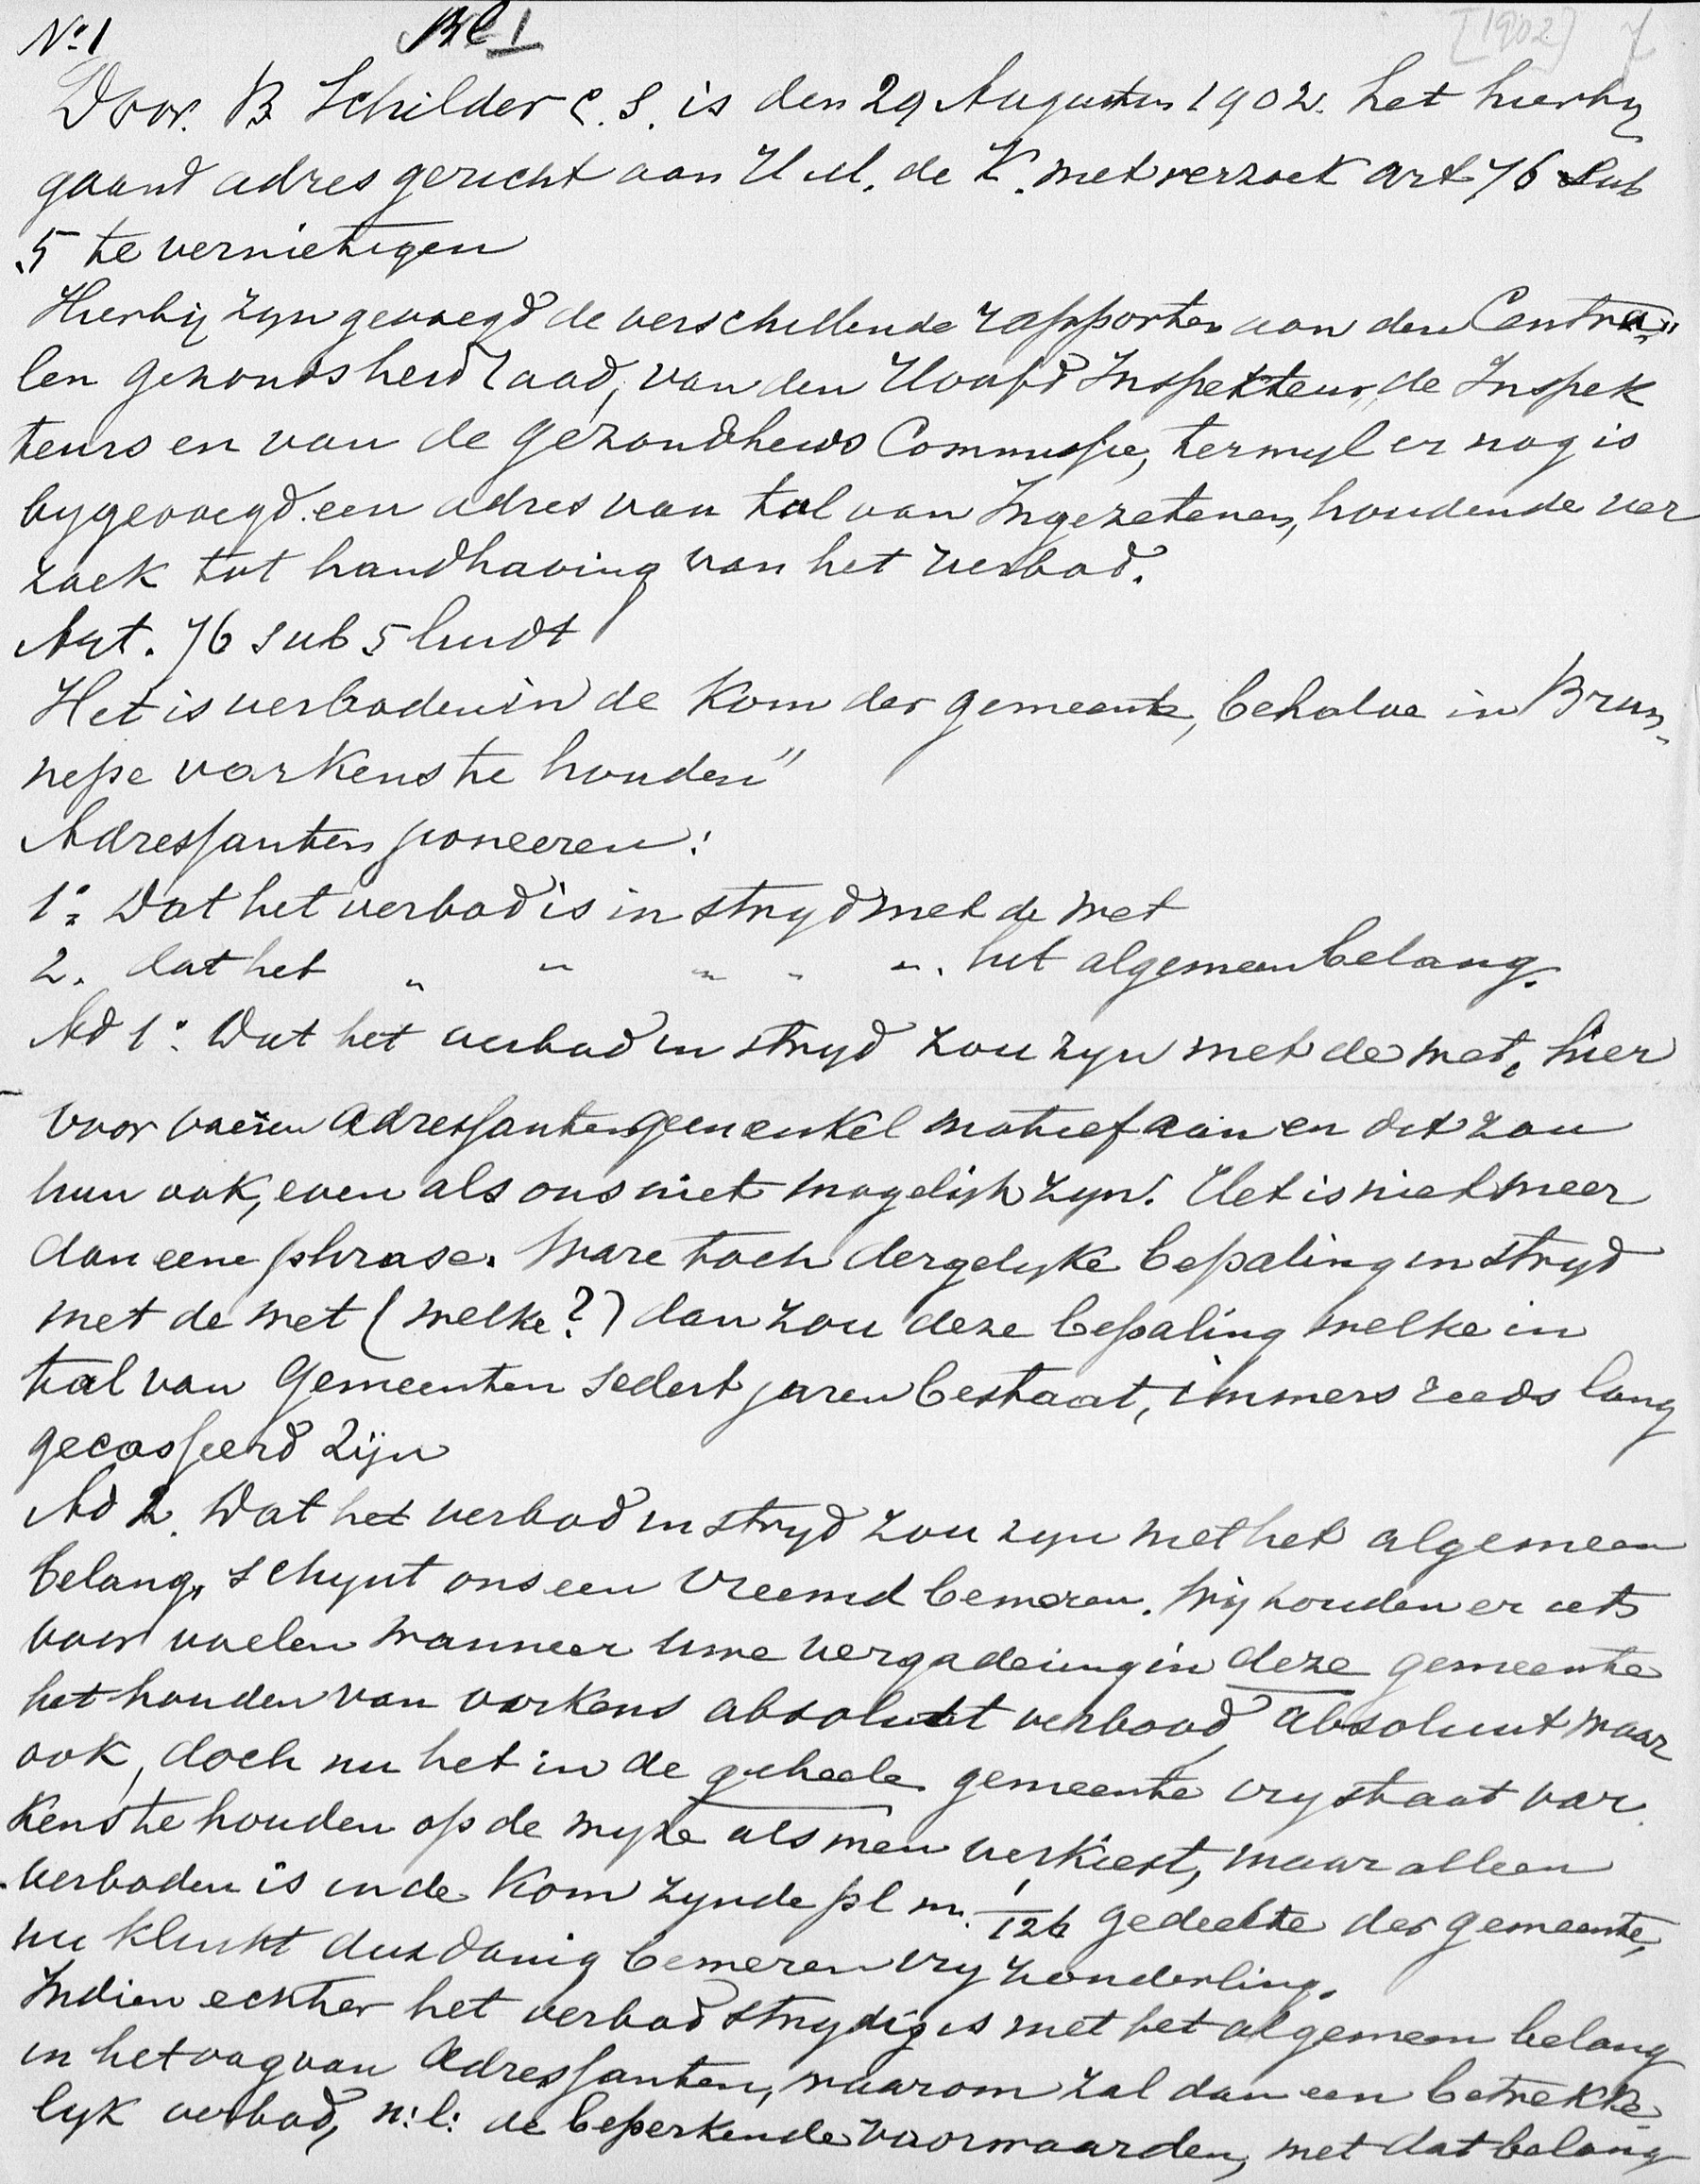 No 1 Bl 1 [1902] 7
Door B Schilder c.s. is den 29 Augustus 1902 het hierby
gaand adres gericht aan H.M. de K. met verzoek art 76 sub
5 te vernietigen
Hierbij zyn gevoegd de verschillende rapporten aan den Centra„
len gezondsheid raad, van den Hoofd Inspekteur, de Inspek
teurs en van de gezondheids Commissie, terwyl er nog is
bygevoegd een adres van tal van Ingezetenen, houdende ver
zoek tot handhaving van het verbod.
Art. 76 sub 5 luidt
Het is verboden in de Kom der gemeente, behalve in Brun„
nepe varkens te houden"
Adressanten poneeren:
1o Dat het verbod is in stryd met de wet
2. dat het " " " " ". het algemeen belang.
Ad 1o. Dat het verbod in stryd zou zyn met de wet, hier
voor voeren adressanten geen enkel motief aan en dit zou
hun ook, even als ons niet mogelijk zyn. Het is niet meer
dan eene phrase. Ware toch dergelyke bepaling in stryd
met de wet (welke?) dan zou deze bepaling welke in
tal van Gemeenten sedert jaren bestaat, immers reeds lang
gecasseerd zijn
Ad 2. Dat het verbod in stryd zou zyn met het algemeen
belang, schynt ons een vreemd beweren. Wij zouden er iets
voor voelen wanneer uwe vergadering in deze gemeente
het houden van varkens absoluut verbood, absoluut maar
ook, doch nu het in de geheele gemeente vry staat var
kens te houden op de wyze als men verkiest, maar alleen
verboden is in de Kom zynde pl m. 1/126 gedeelte der gemeente,
nu klinkt dusdanig beweren vry zonderling.
Indien echter het verbod strydig is met het algemeen belang
in het oog van adressanten, waarom zal dan een betrekke„
lyk verbod, n:l: de beperkende voorwaarden, met dat belang